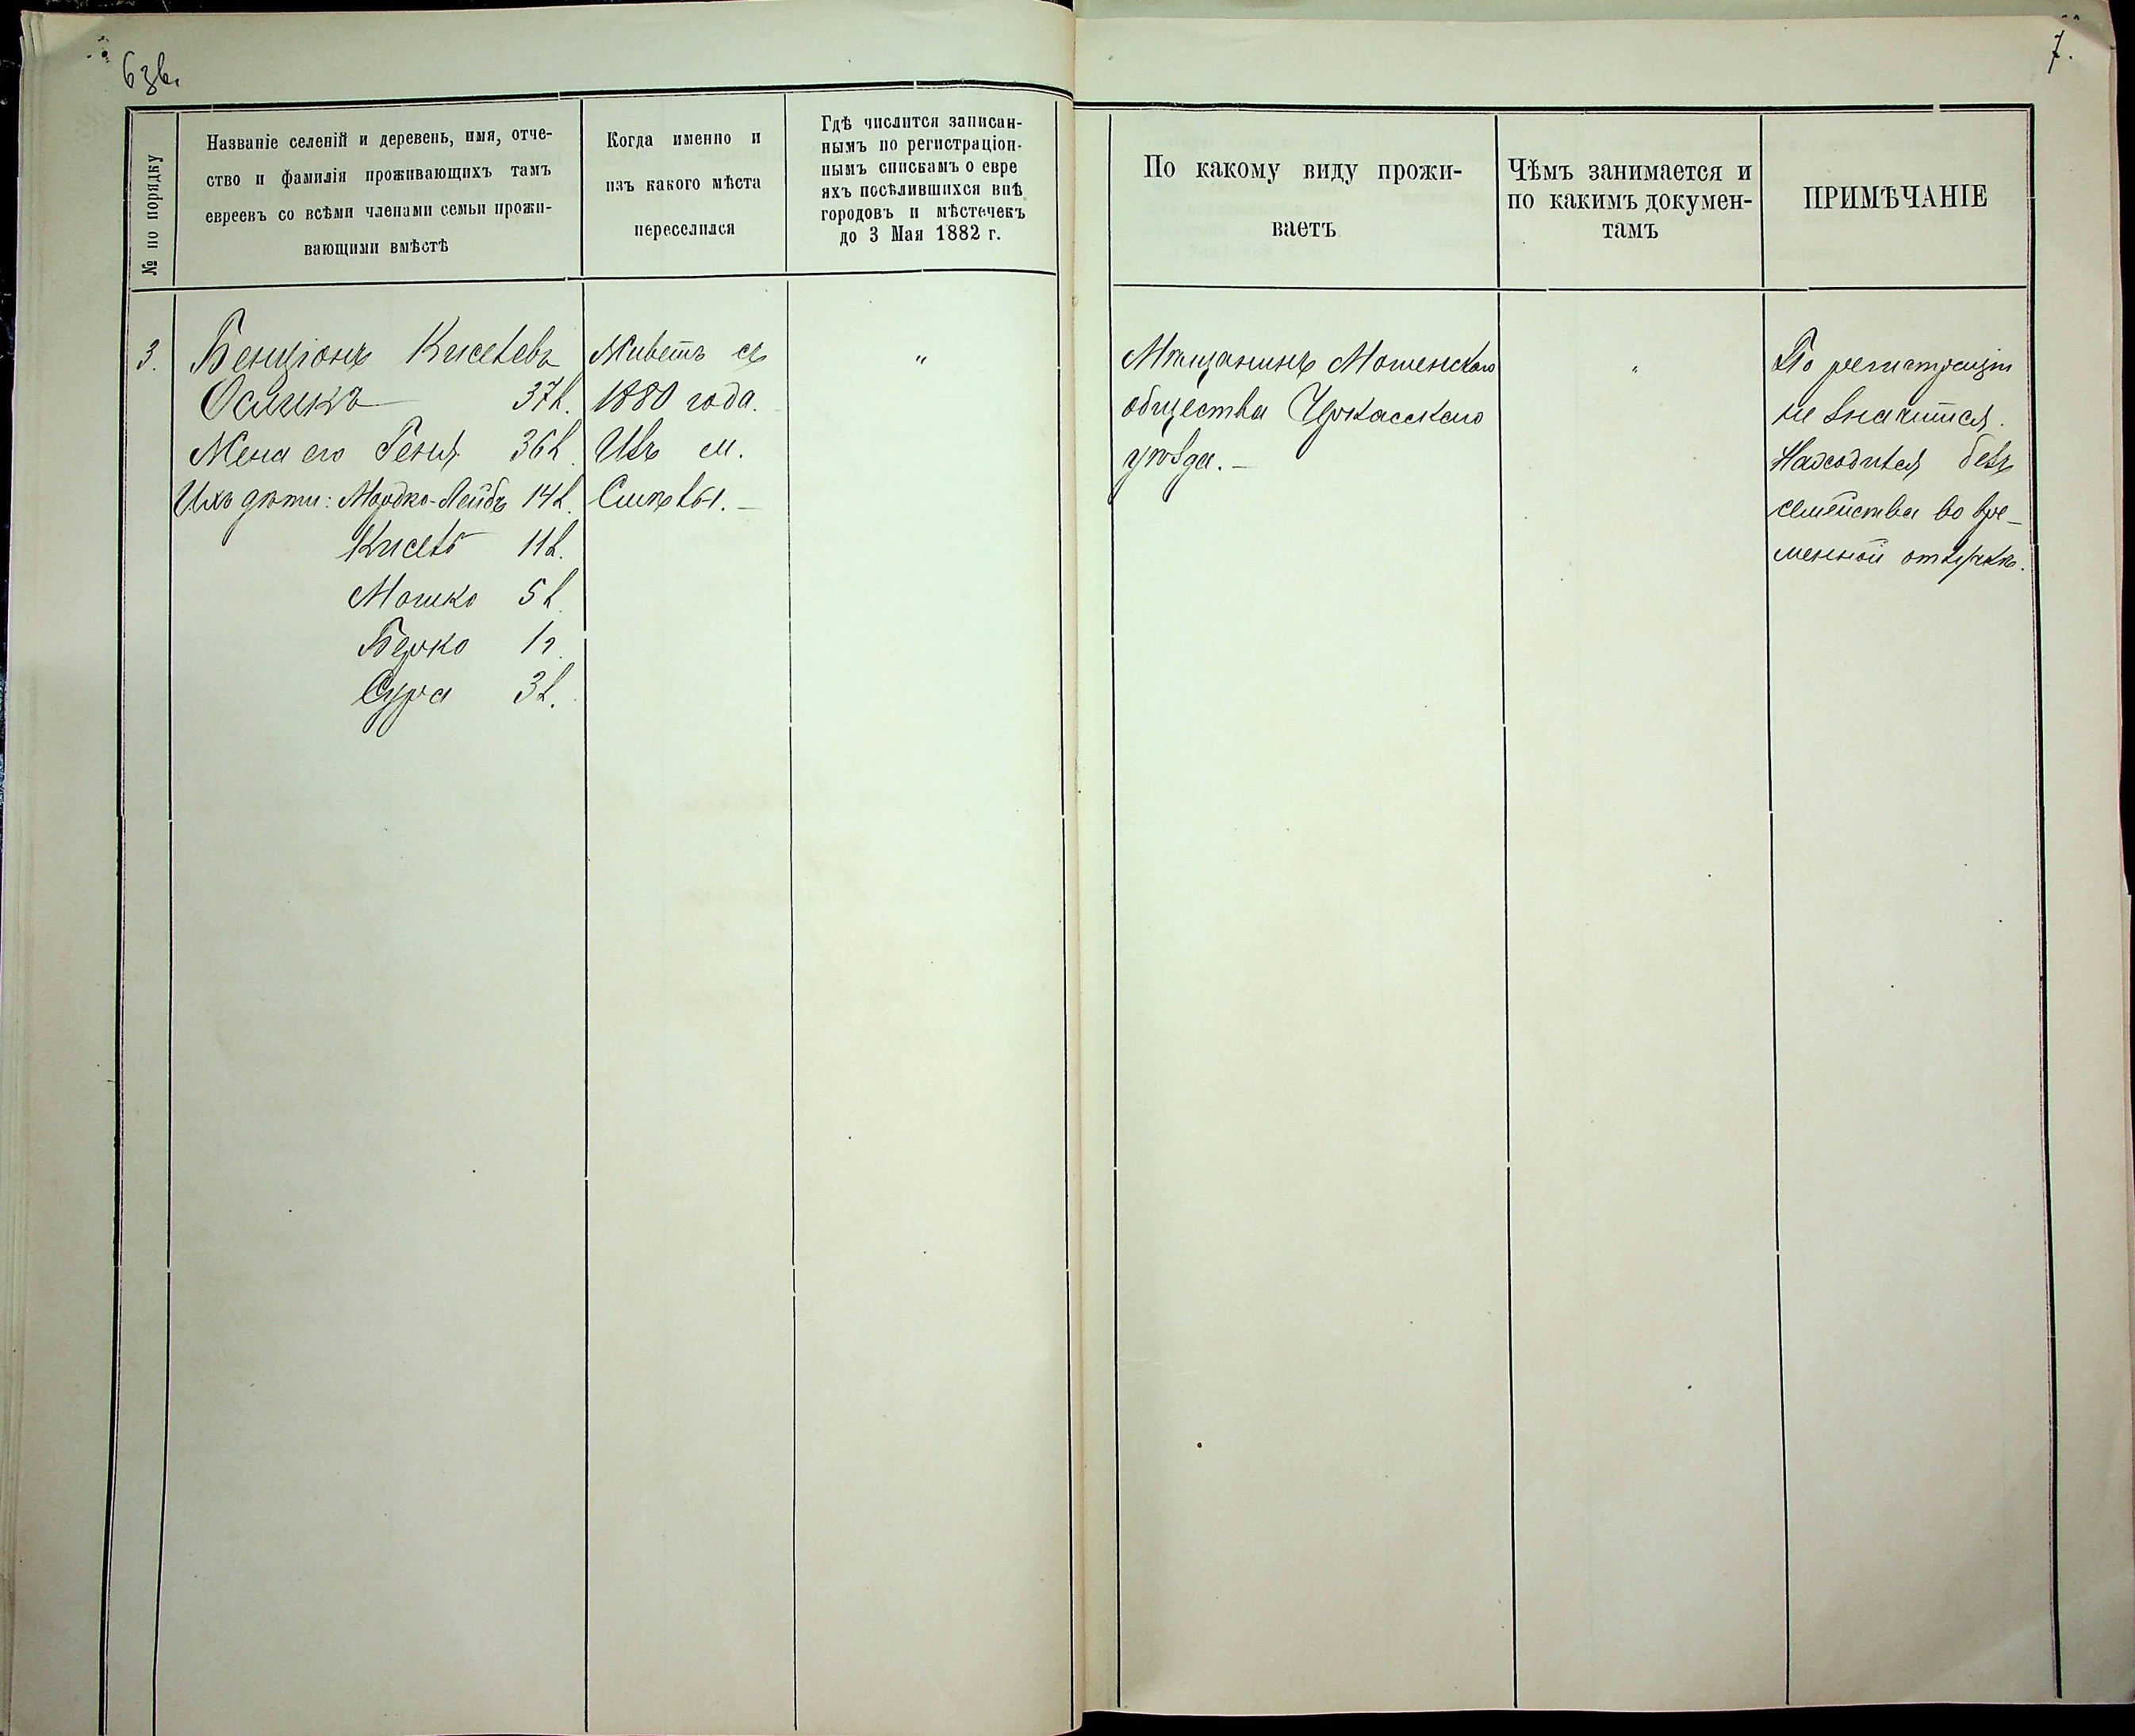 6 зв.
7.
№ по порядку
Названіе селеній и деревень, имя, отче-
ство и фамилія проживающихъ тамъ
евреевъ со всѣми членами семьи прожи-
вающими вмѣстѣ
Когда именно и
изъ какого мѣста
переселился
Гдѣ числится записан-
нымъ по регистраціон-
нымъ спискамъ о евре
яхъ посѣлившихся внѣ
городовъ и мѣстечекъ
до 3 Мая 1882 г.
По какому виду прожи-
ваетъ
Чѣмъ занимается и
по какимъ докумен-
тамъ
ПРИМѢЧАНІЕ
3.
Бенціонъ Киселевъ
Осликъ 37 л.
Жена его Геня 36 л.
Ихъ дѣти: Мордко-Лейбъ 14 л.
Кисель 11 л.
Мошко 5 л.
Берко 1 г.
Сура 3 л.
Живетъ съ
1880 года.
Изъ м.
Смѣлы. —
"
Мѣщанинъ Мошенского
общества Черкасского
уѣзда. —
"
По регистраціи
не значится.
Находится безъ
семейства во вре-
менной отлучкѣ.